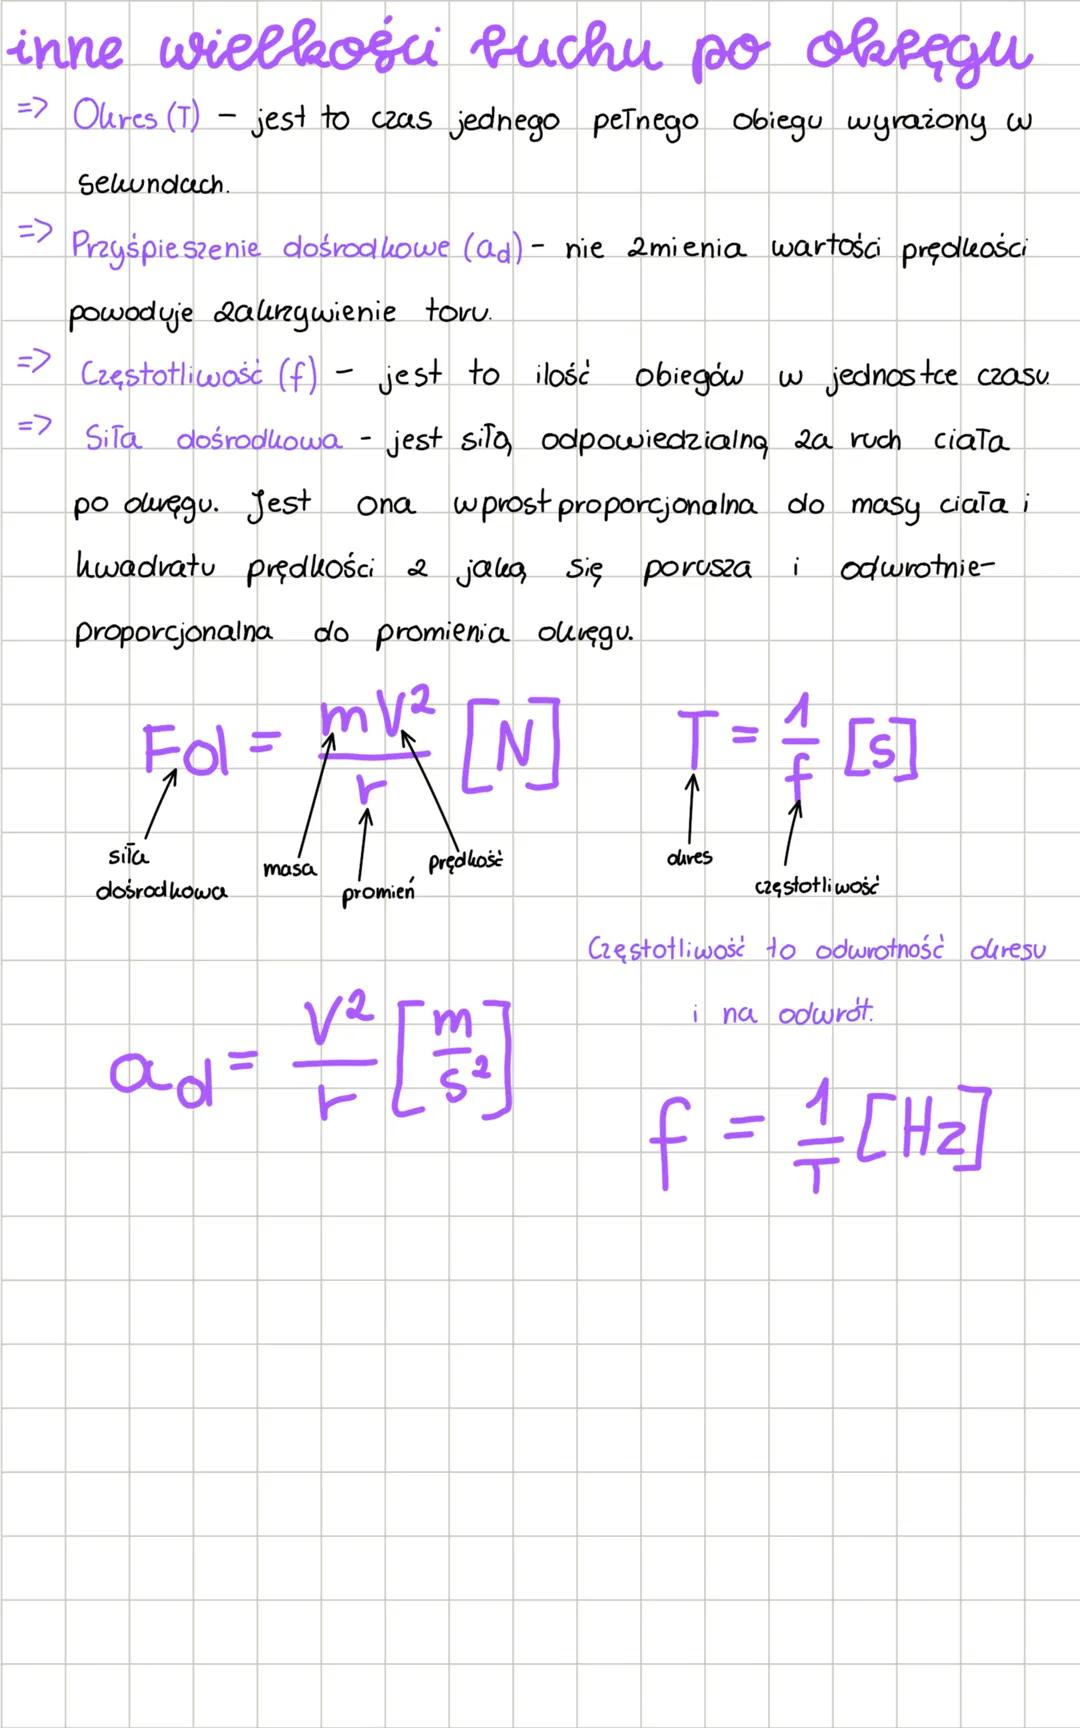 inne wielkości ruchu po okręgu
=> Okres (T) – jest to czas jednego pełnego obiegu wyrażony w
sekundach.
=> Przyśpieszenie dośrodkowe (ad) - nie zmienia wartości prędkości
powoduje zakrzywienie toru.
=> Częstotliwość (f) – jest to ilość obiegów w jednostce czasu.
=> Siła dośrodkowa - jest siłą odpowiedzialną za ruch ciała
po okręgu. Jest ona wprost proporcjonalna do masy ciała i
kwadratu prędkości z jaką się porusza i odwrotnie-
proporcjonalna do promienia okręgu.
Fd = mV²/r [N]
siła
dośrodkowa
masa
promień
prędkość
T = 1/f [s]
okres
częstotliwość
Częstotliwość to odwrotność okresu
i na odwrót.
ad = V²/r [m/s²]
f = 1/T [Hz]